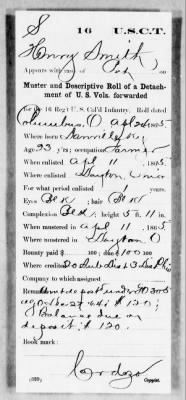 S 16 U.S.C.T.
Henry Smith,
Appears with rank of Pvt on
Muster and Descriptive Roll of a Detach-
ment of U. S. Vols. forwarded
for the 16 Reg't U. S. Col'd Infantry. Roll dated
Columbus, O Apl 24, 1865.
Where born
Age 23 y'rs; occupation Farmer
When enlisted Apl 11, 1865.
Where enlisted Dayton, Ohio
For what period enlisted years.
Eyes Blk; hair Blk
Complexion Blk; height 5 ft. 11 in.
When mustered in Apl 11, 1865.
Where mustered in Dayton O
Bounty paid $ 100; due $ 100
Where credited 3 Ohio
Company to which assigned
Remarks: Amt deposit under G O 305
$ 120;
Balance due on
deposit $ 120.
Book mark:
Cordozo
(339) Copyist.